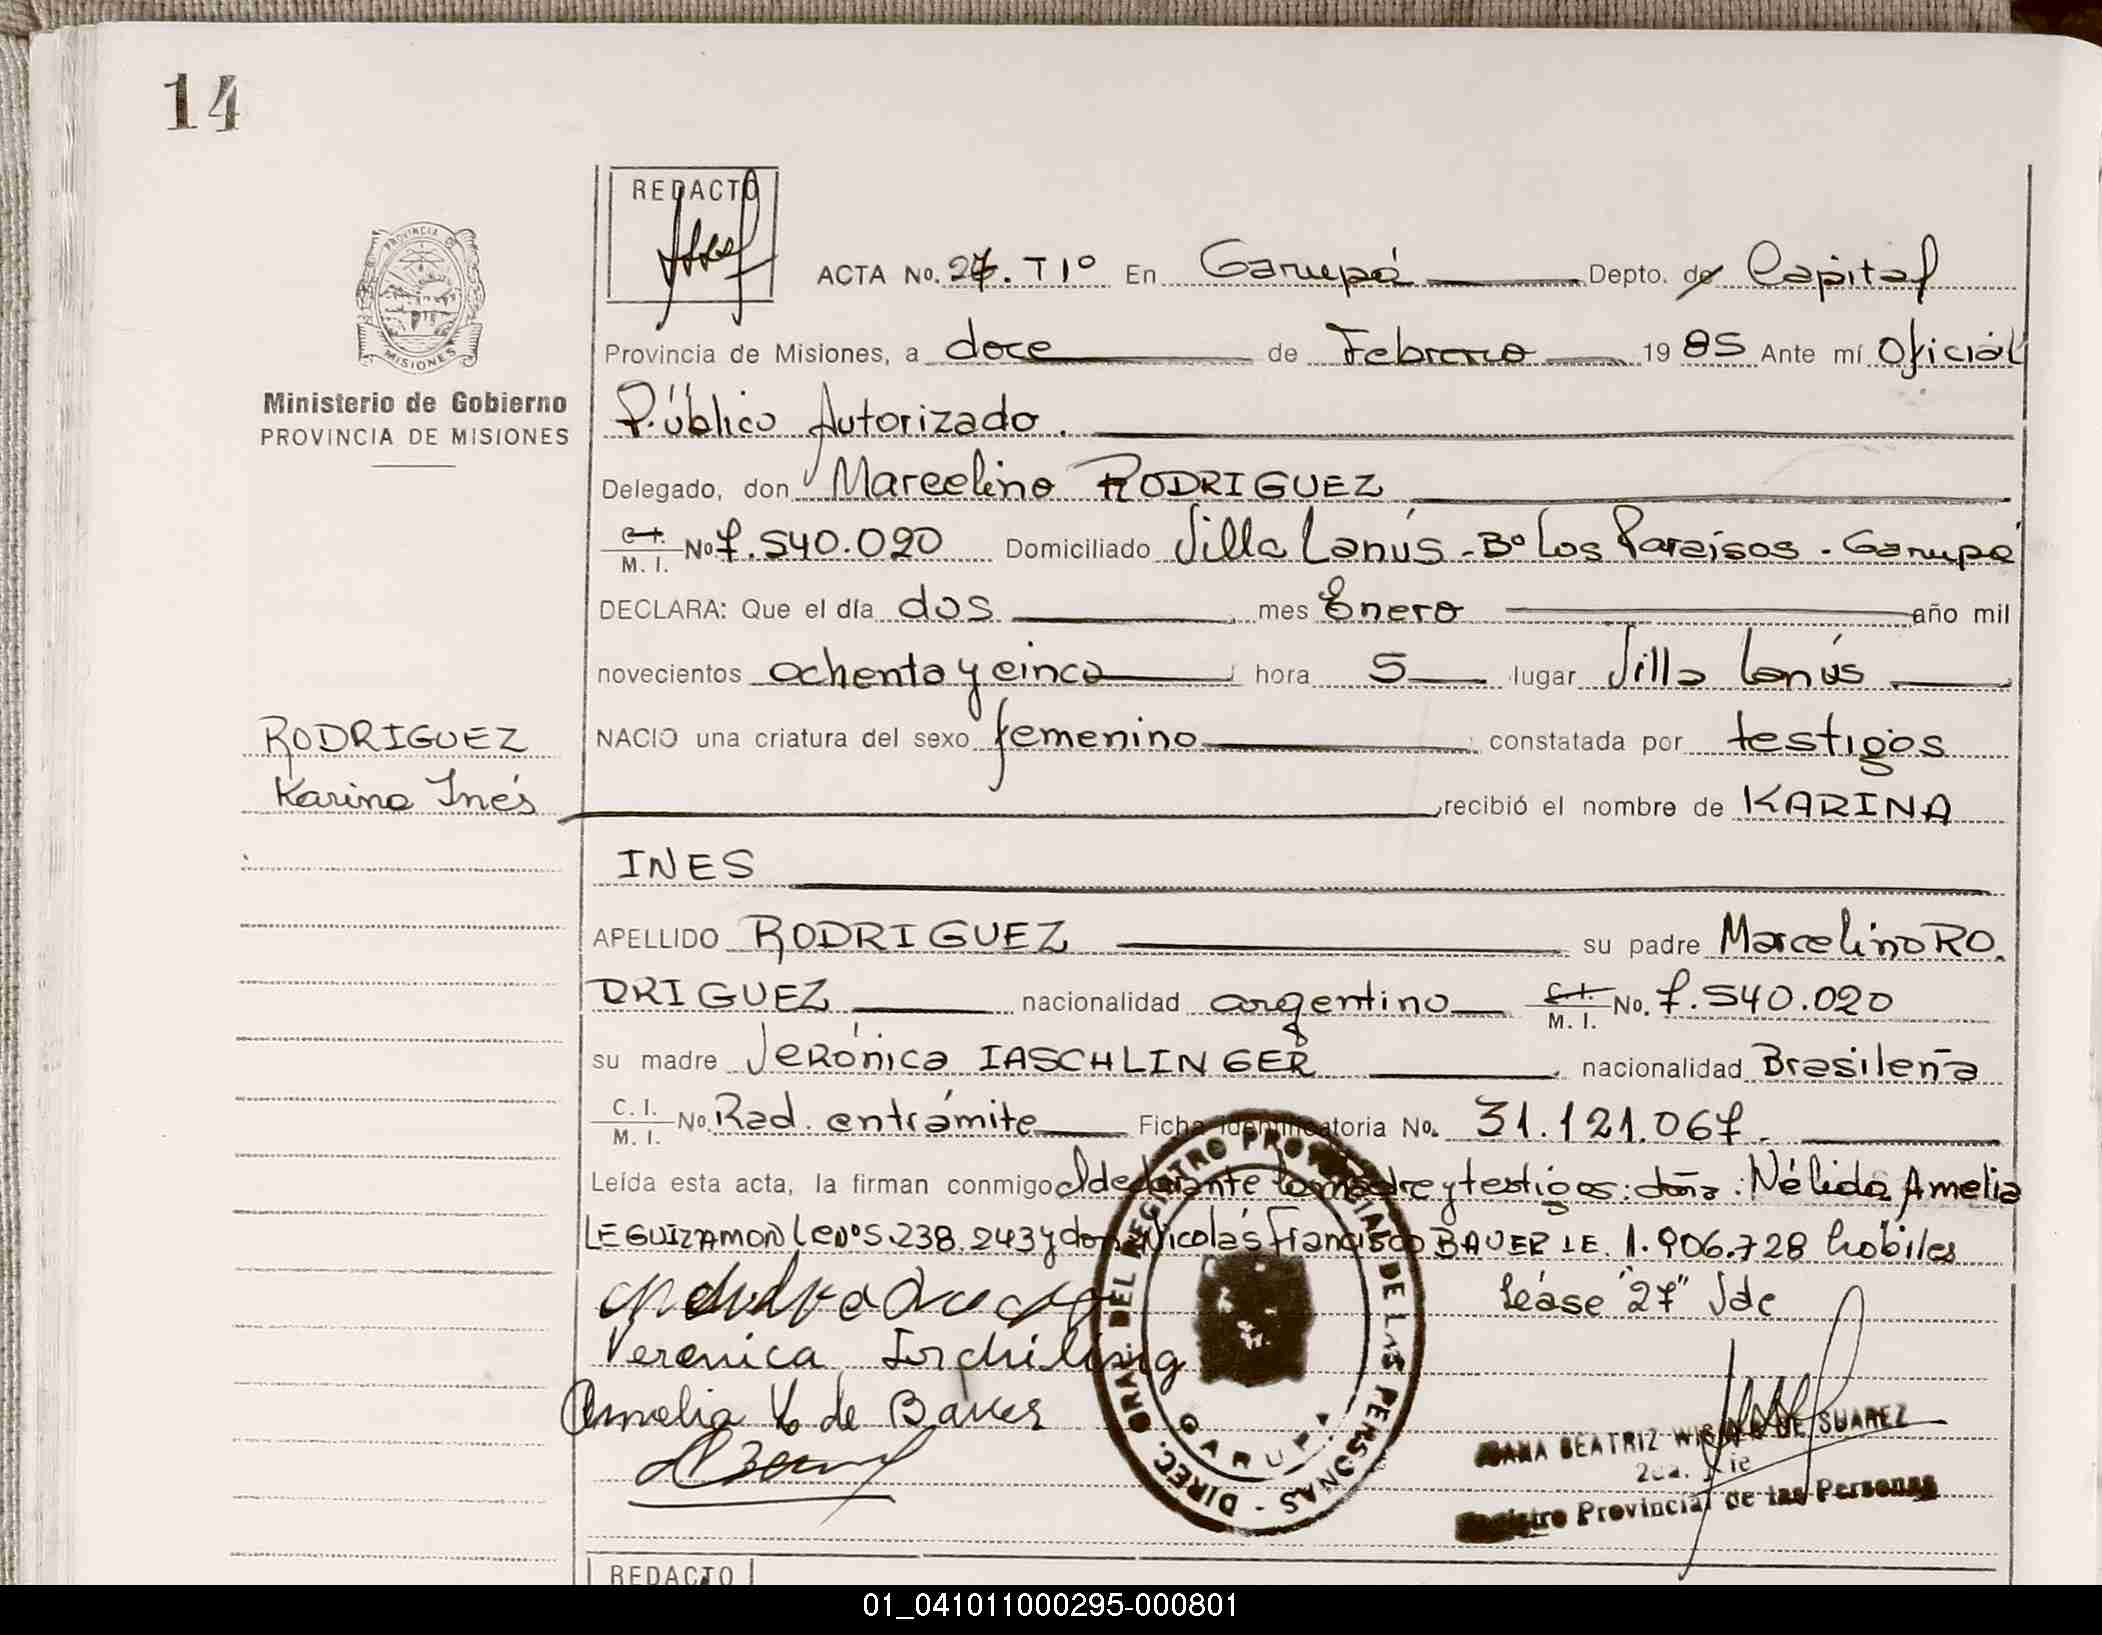 14
REDACTO
PROVINCIA DE
MISIONES
Ministerio de Gobierno
PROVINCIA DE MISIONES
ACTA No. 27. T Iº En Garupá Depto. de Capital
Provincia de Misiones, a doce de Febrero 1985 Ante mí Oficial
Público Autorizado.
Delegado, don Marcelino RODRIGUEZ
C.I. M. I. No 7.540.020 Domiciliado Villa Lanús - Bº Los Paraísos - Garupá
DECLARA: Que el día dos mes Enero año mil
novecientos ochenta y cinco hora 5 lugar Villa Lanús
RODRIGUEZ
Karina Inés
NACIO una criatura del sexo femenino constatada por testigos
recibió el nombre de KARINA
INES
APELLIDO RODRIGUEZ su padre Marcelino RO
DRIGUEZ nacionalidad argentino C.I. M. I. No. 7.540.020
su madre Verónica IASCHLINGER nacionalidad Brasileña
C. I. M. I. No. Rad. en trámite Ficha Identificatoria No. 31.121.067.
Leída esta acta, la firman conmigo el declarante la madre y testigos: doña: Nélida Amelia
LEGUIZAMON LC Nº 5.238.243 y don Nicolás Francisco BAUER LE. 1.906.728 hábiles
Léase "27" Vale
Verenica
Amelia L de Bauer
DIREC. GRAL. DEL REGISTRO PROVINCIAL DE LAS PERSONAS -
GARUPA
JUANA BEATRIZ DE SUAREZ
Registro Provincial de las Personas
REDACTO
01_041011000295-000801